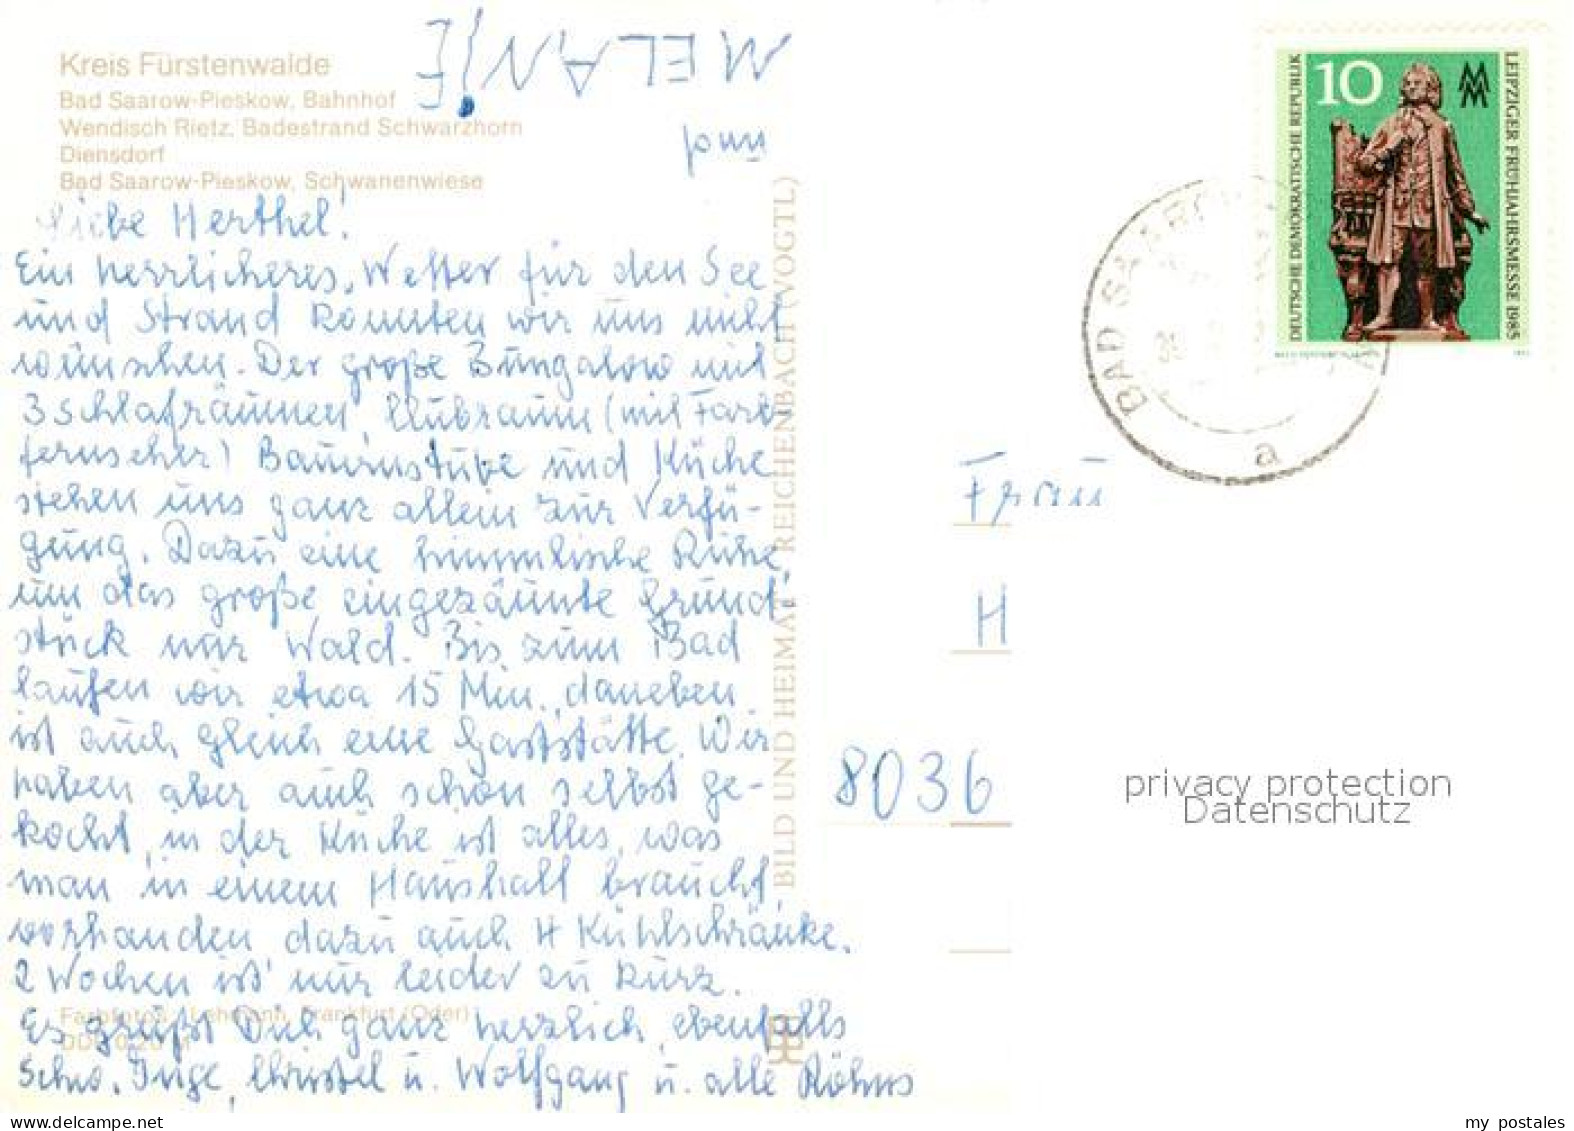 Kreis Fürstenwalde
Bad Saarow-Pieskow, Bahnhof
Wendisch Rietz, Badestrand Schwarzhorn
Diensdorf
Bad Saarow-Pieskow, Schwanenwiese
MELANIE
und
Liebe Herthel!
Ein herrlicheres Wetter für den See
und Strand konnten wir uns nicht
wünschen. Der große Bungalow mit
3 Schlafräumen, Clubraum (mit Farb
fernseher) Bauernstube und Küche
stehen uns ganz allein zur Verfü-
gung. Dazu eine himmlische Ruhe,
um das große eingezäunte Grund-
stück nur Wald. Bis zum Bad
laufen wir etwa 15 Min., daneben
ist auch gleich eine Gaststätte. Wir
haben aber auch schon selbst ge-
kocht, in der Küche ist alles, was
man in einem Haushalt braucht,
vorhanden dazu auch 4 Kühlschränke.
2 Wochen ist nur leider zu kurz.
Es grüßt Dich ganz herzlich, ebenfalls
Schw. Inge, Christel u. Wolfgang u. alle Röhrs
Farbfotos: Lehmann, Frankfurt (Oder)
BILD UND HEIMAT REICHENBACH (VOGTL)
DEUTSCHE DEMOKRATISCHE REPUBLIK
10
MM
LEIPZIGER FRÜHJAHRSMESSE 1985
BAD SAAROW
a
Frau
H
8036
privacy protection
Datenschutz
my postales